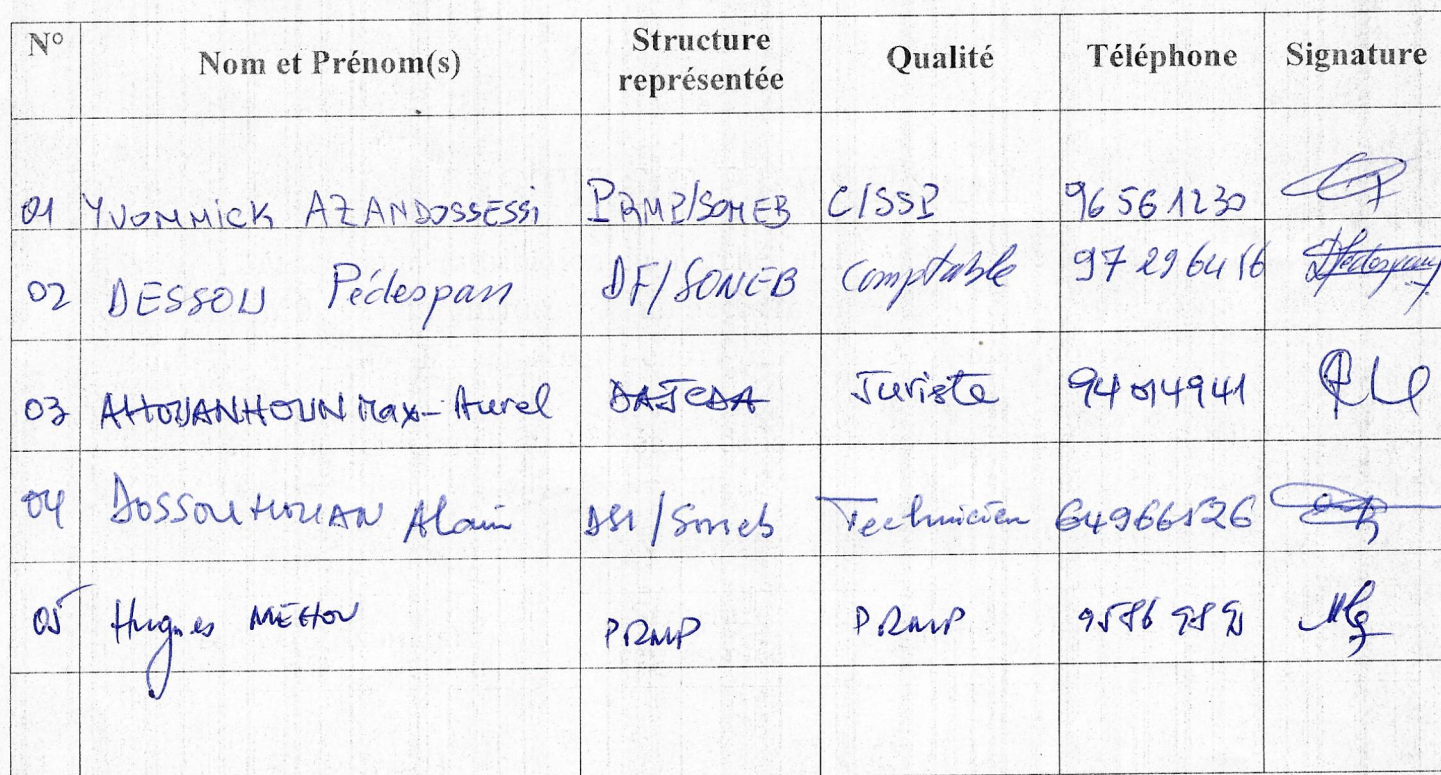 N° Nom et Prénom(s) Structure représentée Qualité Téléphone Signature
01 YVONNICK AZANDOSSESSI PRMP/SONEB C/SSP 96 56 12 30
02 DESSOU Pédespan DF/SONEB Comptable 97 29 64 16
03 AHOUANHOUN Max-Aurel DAJCDA Juriste 94 01 49 41
04 DOSSOU HOUAN Alain DSI/Soneb Technicien 64966526
05 Hugues MEHOU PRMP PRMP